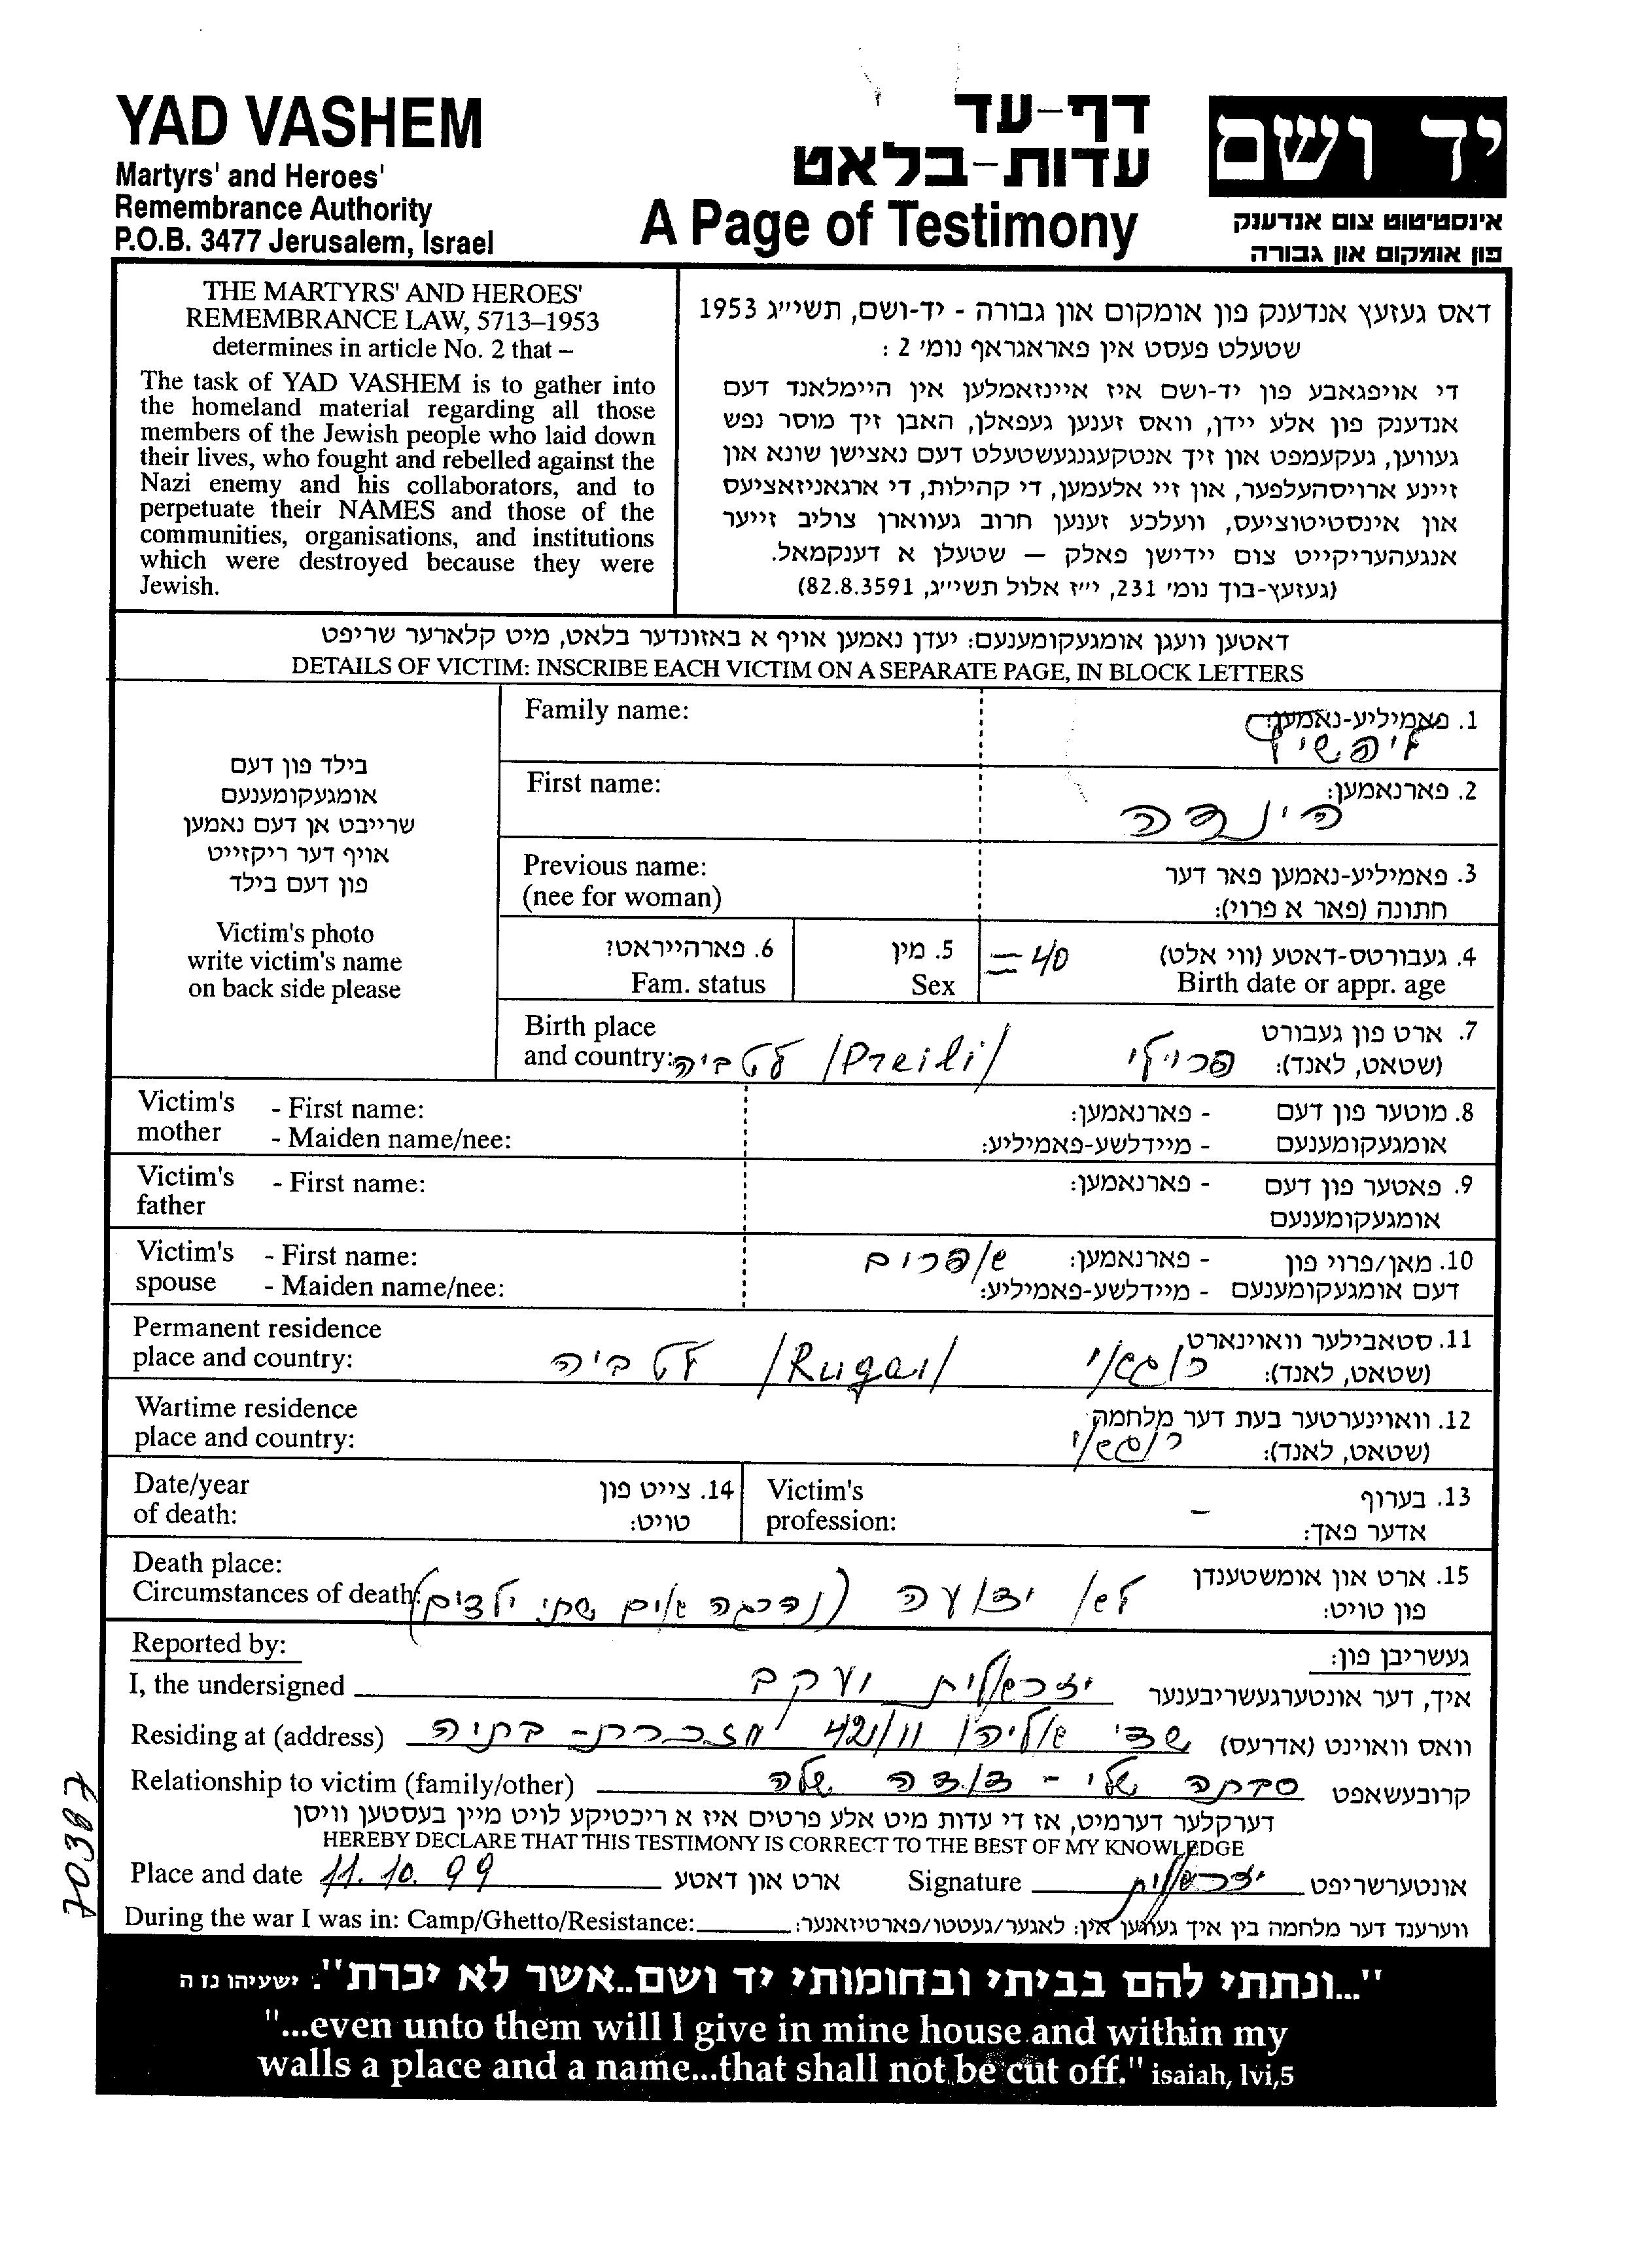 YAD VASHEM
Martyrs' and Heroes'
Remembrance Authority
P.O.B. 3477 Jerusalem, Israel
דף-עד
עדות-בלאט
A Page of Testimony
יד ושם
אינסטיטוט צום אנדענק
פון אומקום און גבורה
THE MARTYRS' AND HEROES'
REMEMBRANCE LAW, 5713–1953
determines in article No. 2 that –
The task of YAD VASHEM is to gather into
the homeland material regarding all those
members of the Jewish people who laid down
their lives, who fought and rebelled against the
Nazi enemy and his collaborators, and to
perpetuate their NAMES and those of the
communities, organisations, and institutions
which were destroyed because they were
Jewish.
דאס געזעץ אנדענק פון אומקום און גבורה - יד-ושם, תשי״ג 1953
שטעלט פעסט אין פאראגראף נומ׳ 2 :
די אויפגאבע פון יד-ושם איז איינזאמלען אין היימלאנד דעם
אנדענק פון אלע יידן, וואס זענען געפאלן, האבן זיך מוסר נפש
געווען, געקעמפט און זיך אנטקעגנגעשטעלט דעם נאצישן שונא און
זיינע ארויסהעלפער, און זיי אלעמען, די קהילות, די ארגאניזאציעס
און אינסטיטוציעס, וועלכע זענען חרוב געווארן צוליב זייער
אנגעהעריקייט צום יידישן פאלק — שטעלן א דענקמאל.
(געזעץ-בוך נומ׳ 231, י״ז אלול תשי״ג, 82.8.3591)
דאטען וועגן אומגעקומענעם: יעדן נאמען אויף א באזונדער בלאט, מיט קלארער שריפט
DETAILS OF VICTIM: INSCRIBE EACH VICTIM ON A SEPARATE PAGE, IN BLOCK LETTERS
בילד פון דעם
אומגעקומענעם
שרייבט אן דעם נאמען
אויף דער ריקזייט
פון דעם בילד
Victim's photo
write victim's name
on back side please
Family name: 1. פאמיליע-נאמען:
ליפשיץ
First name: 2. פארנאמען:
הינדה
Previous name: 3. פאמיליע-נאמען פאר דער
(nee for woman) חתונה (פאר א פרוי):
6. פארהייראט? 5. מין = 40 4. געבורטס-דאטע (ווי אלט)
Fam. status Sex Birth date or appr. age
Birth place 7. ארט פון געבורט
and country: לטביה /Preili/ פרילי (שטאט, לאנד):
Victim's - First name: - פארנאמען: 8. מוטער פון דעם
mother - Maiden name/nee: - מיידלשע-פאמיליע: אומגעקומענעם
Victim's - First name: - פארנאמען: 9. פאטער פון דעם
father אומגעקומענעם
Victim's - First name: אפרים - פארנאמען: 10. מאן/פרוי פון
spouse - Maiden name/nee: - מיידלשע-פאמיליע: דעם אומגעקומענעם
Permanent residence 11. סטאבילער וואוינארט
place and country: לטביה /Rugai/ רוגאי (שטאט, לאנד):
Wartime residence 12. וואוינערטער בעת דער מלחמה
place and country: רוגאי (שטאט, לאנד):
Date/year 14. צייט פון Victim's – 13. בערוף
of death: טויט: profession: אדער פאך:
Death place: 15. ארט און אומשטענדן
Circumstances of death: לא ידועה (נהרגה עים שתי ילדים) פון טויט:
Reported by: געשריבן פון:
I, the undersigned יזראלית יעקב איך, דער אונטערגעשריבענער
Residing at (address) 42/11 מזכרת-בתיה וואס וואוינט (אדרעס)
Relationship to victim (family/other) סבתה שלי - דודה שלה קרובעשאפט
דערקלער דערמיט, אז די עדות מיט אלע פרטים איז א ריכטיקע לויט מיין בעסטען וויסן
HEREBY DECLARE THAT THIS TESTIMONY IS CORRECT TO THE BEST OF MY KNOWLEDGE
Place and date 11.10.99 ארט און דאטע Signature אונטערשריפט
During the war I was in: Camp/Ghetto/Resistance: ווערענד דער מלחמה בין איך געווען אין: לאגער/געטטו/פארטיזאנער:
"...ונתתי להם בביתי ובחומותי יד ושם..אשר לא יכרת". ישעיהו נז ה
"...even unto them will I give in mine house and within my
walls a place and a name...that shall not be cut off." isaiah, lvi,5